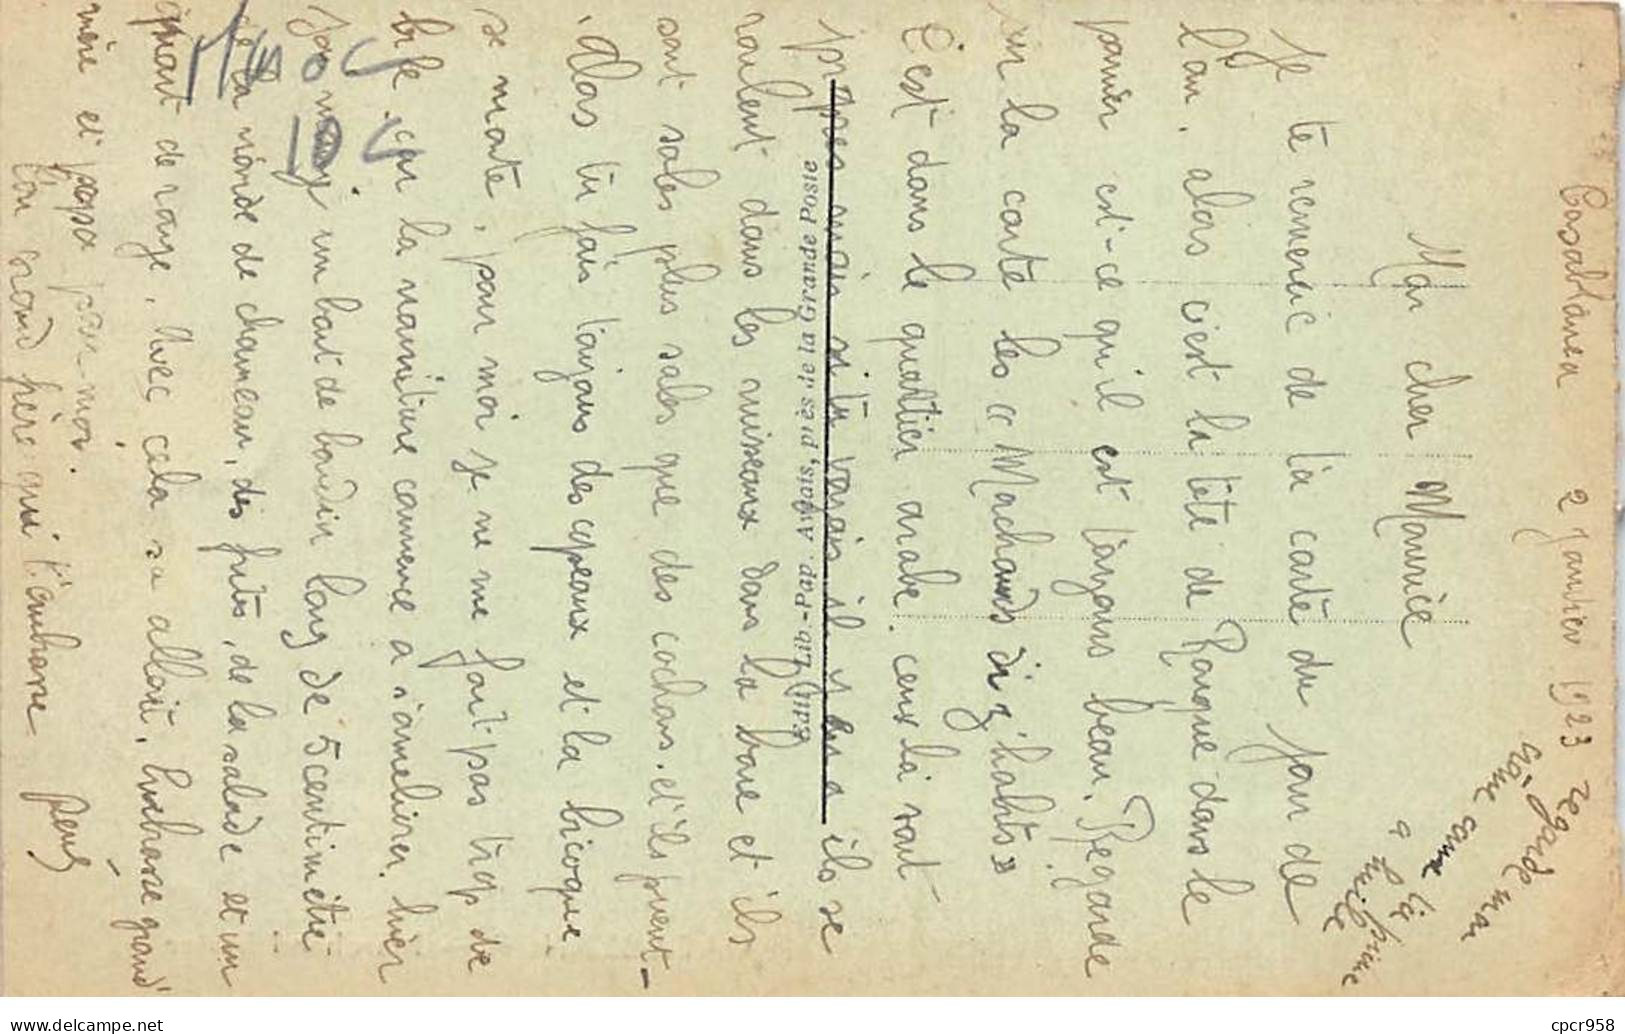 Casablanca 2 Janvier 1923
regarde mon
crâne comme
là
à
Lucile
Mon cher Maurice
Je te remercie de ta carte du jour de
l'an. alors c'est la tête de Roque dans le
panier est-ce qu'il est toujours beau. Regarde
sur la carte les « Marchands d'habits »
C'est dans le quartier arabe. ceux là sont
propres mais si tu voyais il y en a ils se
roulent dans les ruisseaux dans la boue et ils
sont sales plus sales que des cochons. et ils puent-
. Alors tu fais toujours des copeaux et la bicoque
se monte, pour moi je ne me fait pas trop de
bile. car la nourriture commence a s'ameliorer. hier
j'ai mangé un bout de boudin long de 5 centimètre
de la viande de chameau, des frites, de la salade et un
quart de rouge. Avec cela sa allait. Embrasse grand'
mère et papa pour moi.
Ton grand frère qui t'embrasse
Edit) Lib-Pap. A. près de la Grande Poste
cpcr958